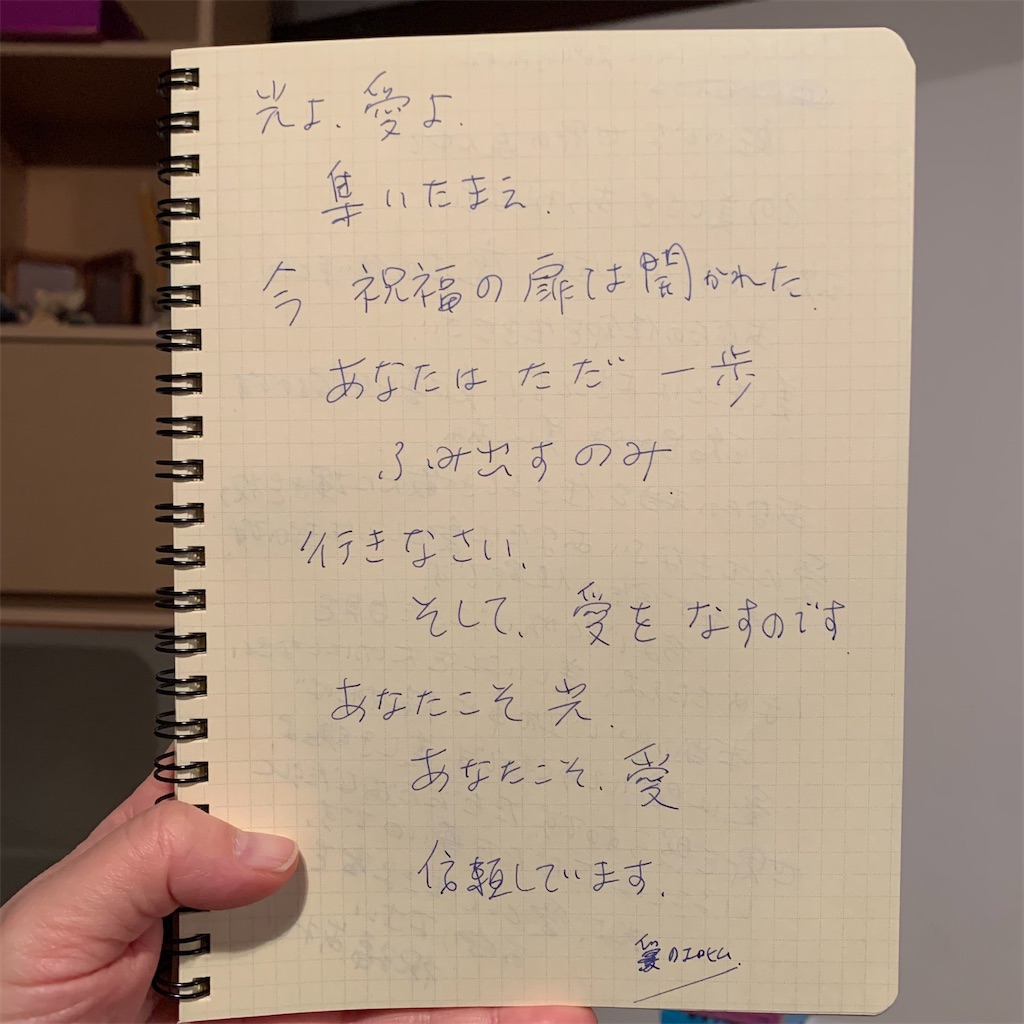 光よ、愛よ、
集いたまえ.
今 祝福の扉は開かれた.
あなたは ただ 一歩
ふみ出すのみ.
行きなさい、
そして、愛を なすのです.
あなたこそ 光.
あなたこそ、愛
信頼しています.
愛の